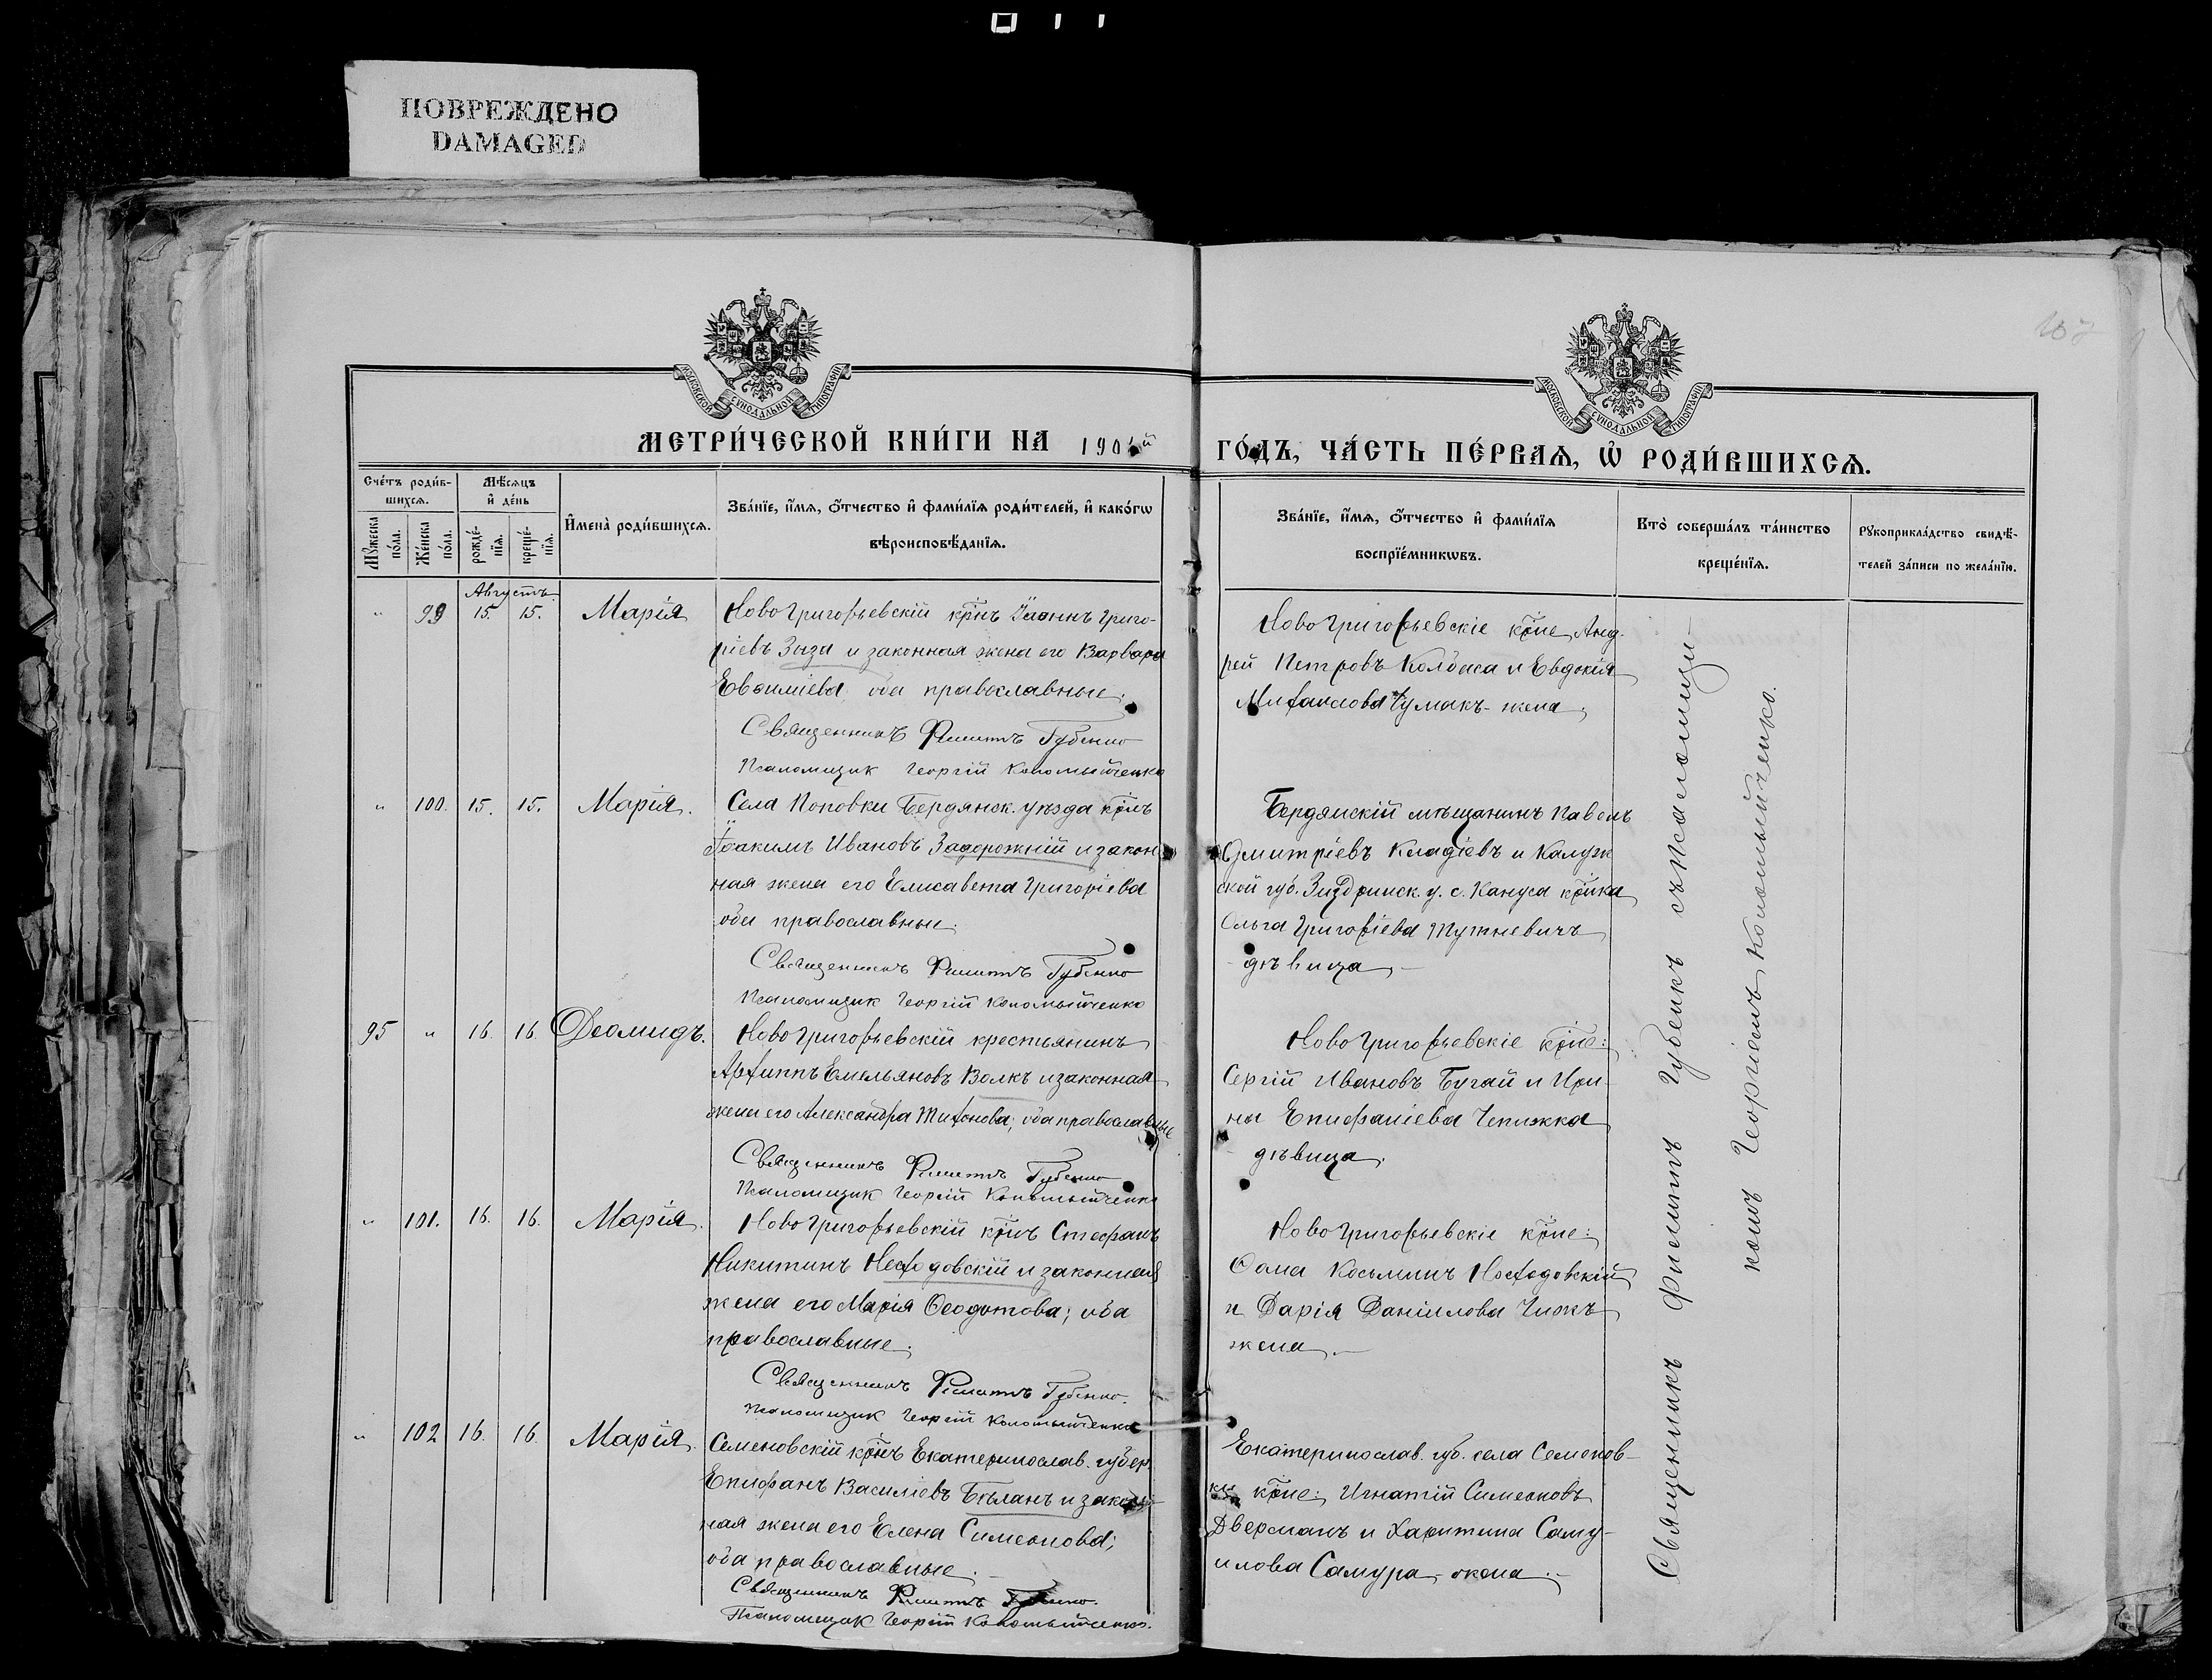 ПОВРЕЖДЕНО
DAMAGED
107
МОСКОВСКОЙ СУНОДАЛЬНОЙ ТИПОГРАФІИ
МОСКОВСКОЙ СУНОДАЛЬНОЙ ТИПОГРАФІИ
МЕТРИ́ЧЕСКОЙ КНИ́ГИ НА 190 й
ГО́ДЪ, ЧА́СТЬ ПЕ́РВАѦ, Ѡ҆ РОДИ́ВШИХСѦ.
Сче́тъ роди́в-
шихсѧ.
Мꙋ́жеска по́ла.
Же́нска по́ла.
Мѣ́сѧцъ
и҆ де́нь
рожде́-
нїѧ.
креще́-
нїѧ.
И҆мена̀ роди́вшихсѧ.
Зва́нїе, и҆́мѧ, ѻ҆́тчество и҆ фами́лїѧ роди́телей, и҆ како́гѡ
вѣроисповѣ́данїѧ.
Зва́нїе, и҆́мѧ, ѻ҆́тчество и҆ фами́лїѧ
воспрїе́мникѡвъ.
Кто̀ соверша́лъ та́инство
креще́нїѧ.
Рꙋкоприкла́дство свидѣ́-
телей за́писи по жела́нїю.
Августъ
" 99 15. 15. Марія
Новогригорьевскій крнъ Іоаннъ Григо-
ріевъ Зыза и законная жена его Варвара
Евфиміева оба православные;
Священникъ Филиппъ Губенко
Псаломщик Георгій Коломыйченко
Новогригорьевскіе крне Анд-
рей Петровъ Колбаса и Евдокія
Михаилова Чумакъ - жена;
" 100. 15. 15. Марія.
Села Поповки Бердянск. уѣзда крнъ
Іоакимъ Ивановъ Задорожній и закон-
ная жена его Елисавета Григоріева
оба православные.
Священникъ Филиппъ Губенко
Псаломщик Георгій Коломыйченко
Бердянскій мѣщанинъ Павелъ
Дмитріевъ Кладіевъ и Калуж
ской губ. Жиздринск. у. с. Кануса крнка
Ольга Григоріева Тутневичъ
- дѣвица, -
95 " 16. 16. Діомидъ.
Новогригорьевскій крестьянинъ
Архиппъ Емельяновъ Волкъ и законная
жена его Александра Тихонова; оба православные
Священникъ Филиппъ Губенко
Псаломщик Георгій Коломыйченко
Новогригорьевскіе крне:
Сергій Ивановъ Бугай и Ири-
на Епифаніева Чепижка
- дѣвица.
" 101. 16. 16. Марія.
Новогригорьевскій крнъ Стефанъ
Никитинъ Неходовскій и законная
жена его Марія Ѳеодотова; оба
православные.
Священникъ Филиппъ Губенко.
Псаломщик Георгій Коломыйченко
Новогригорьевскіе крне:
Ѳома Косьминъ Неходовскій
и Дарія Даніилова Чижъ
жена. -
" 102 16. 16. Марія.
Семеновскій крнъ Екатеринослав. губер.
Епифанъ Василіевъ Бѣланъ и закон-
ная жена его Елена Симеонова;
оба православные. -
Священникъ Филиппъ Губенко.
Псаломщик Георгій Коломыйченко.
Екатеринослав. губ. села Семенов-
ки крне: Игнатій Симеоновъ
Дверманъ и Харитина Саму-
илова Самура, - жена. -
Священникъ Филиппъ Губенкъ съ псаломщи-
комъ Георгіемъ Коломыйченко.